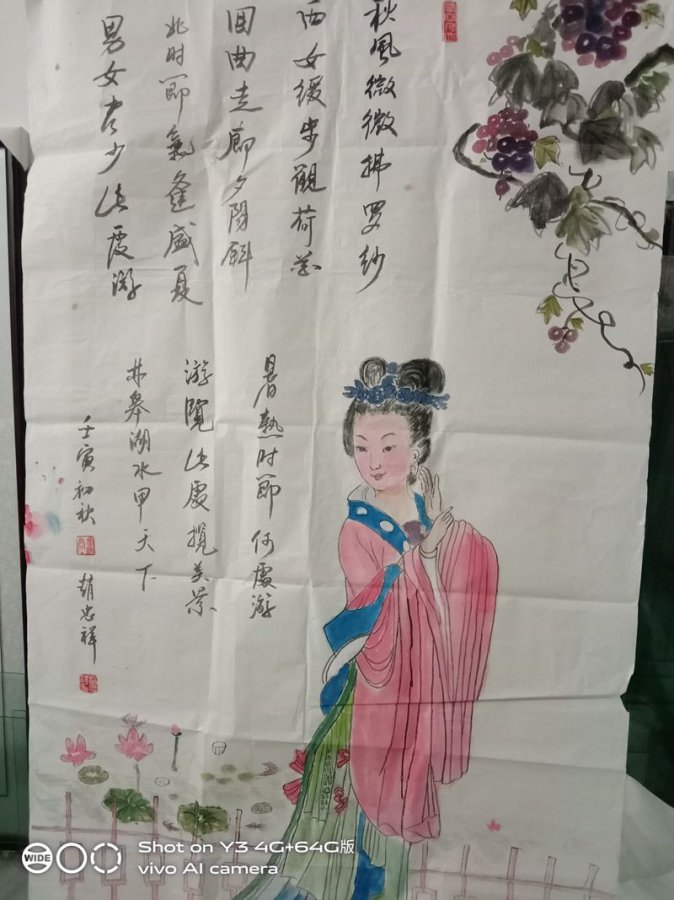 秋風微微拂罗纱
西女缓步觀荷花
回曲走廊夕陽斜
此时節氣逢盛夏
男女老少此處游
暑熱时節何處游
游覽此處攬美景
井皋湖水甲天下
壬寅初秋
趙忠祥
WIDE
Shot on Y3 4G+64G版
vivo AI camera